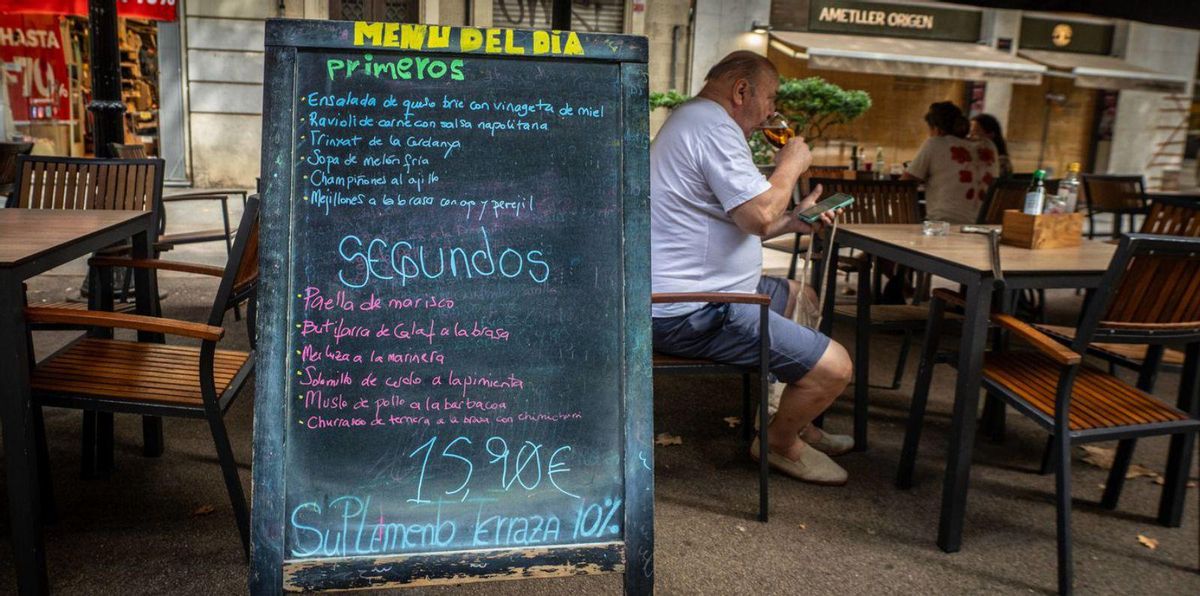 HASTA
AMETLLER ORIGEN
MENU DEL DIA
primeros
Ensalada de queso brie con vinagreta de miel
Ravioli de carne con salsa napolitana
Trinxat de la Cerdanya
Sopa de melón fría
Champiñones al ajillo
Mejillones a la brasa con ajo y perejil
SEGUNDOS
Paella de marisco
Butifarra de Calaf a la brasa
Merluza a la marinera
Solomillo de cerdo a la pimienta
Muslo de pollo a la barbacoa
Churrasco de ternera a la brasa con chimichurri
15,90€
Suplemento terraza 10%